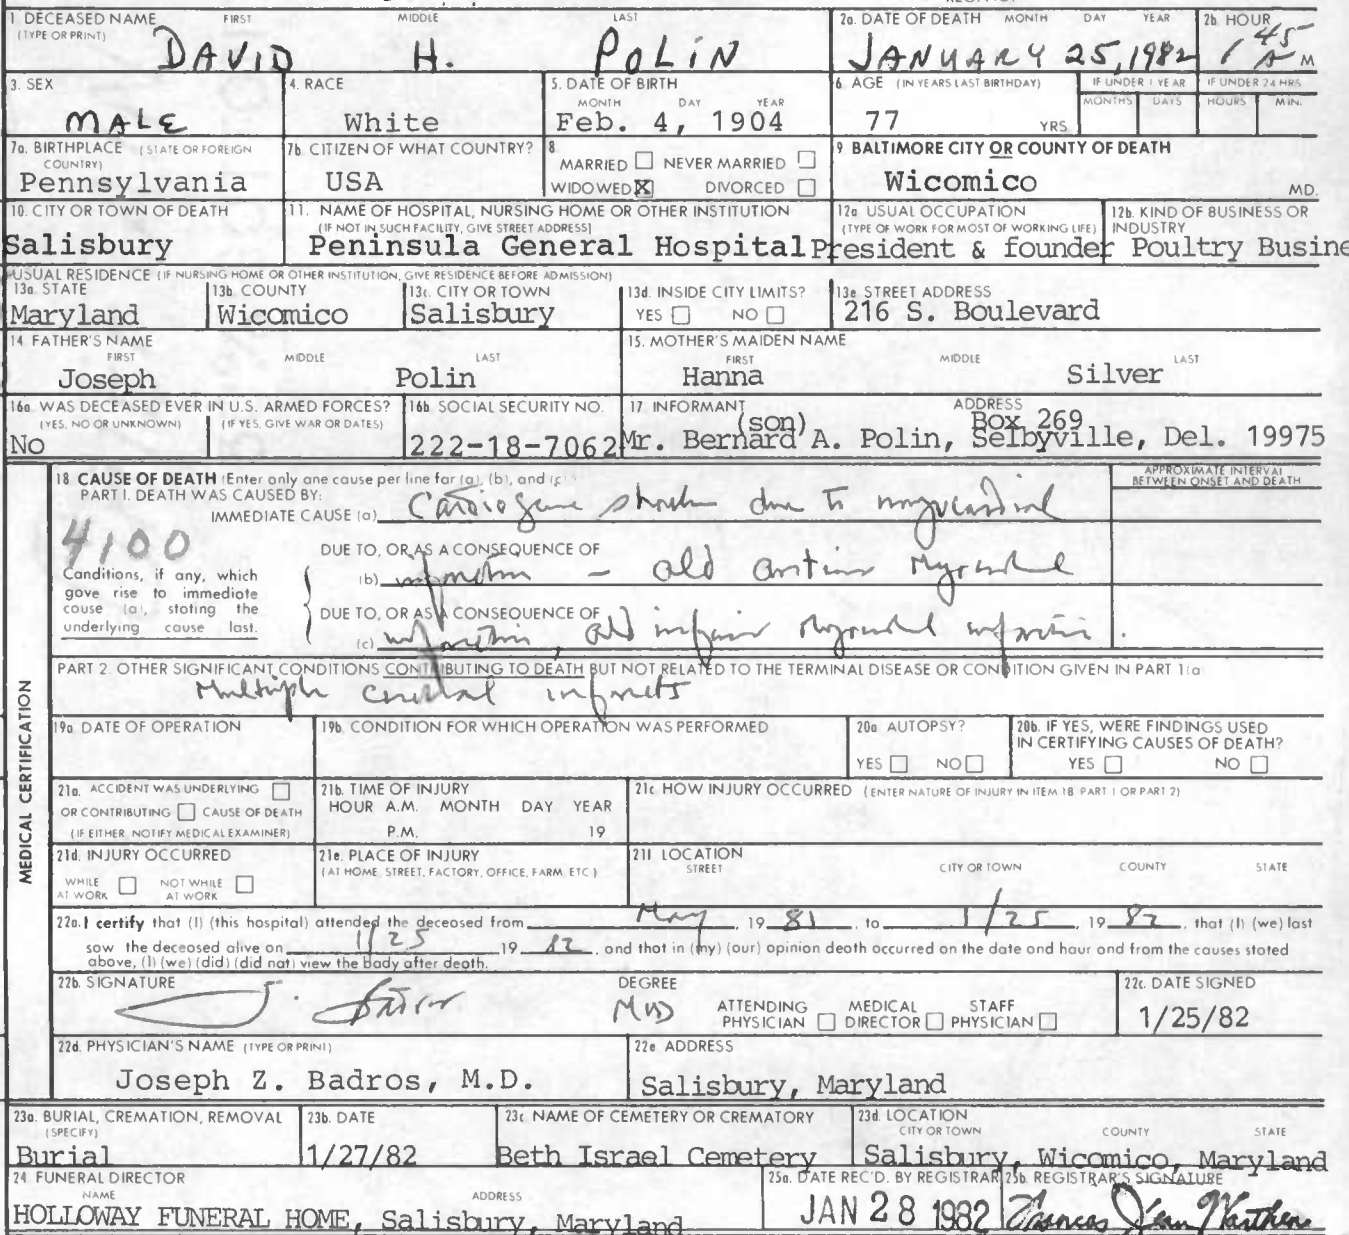 1. DECEASED NAME FIRST MIDDLE LAST
(TYPE OR PRINT)
DAVID H. POLIN
2a. DATE OF DEATH MONTH DAY YEAR
JANUARY 25, 1982
2b. HOUR
1 45 A M
3. SEX
MALE
4. RACE
White
5. DATE OF BIRTH
MONTH DAY YEAR
Feb. 4, 1904
6. AGE (IN YEARS LAST BIRTHDAY)
77 YRS.
IF UNDER 1 YEAR
MONTHS DAYS
IF UNDER 24 HRS.
HOURS MIN.
7a. BIRTHPLACE (STATE OR FOREIGN
COUNTRY)
Pennsylvania
7b. CITIZEN OF WHAT COUNTRY?
USA
8
MARRIED ☐ NEVER MARRIED ☐
WIDOWED ☒ DIVORCED ☐
9 BALTIMORE CITY OR COUNTY OF DEATH
Wicomico MD.
10. CITY OR TOWN OF DEATH
Salisbury
11. NAME OF HOSPITAL, NURSING HOME OR OTHER INSTITUTION
(IF NOT IN SUCH FACILITY, GIVE STREET ADDRESS)
Peninsula General Hospital
12a USUAL OCCUPATION
(TYPE OF WORK FOR MOST OF WORKING LIFE)
President & founder
12b. KIND OF BUSINESS OR
INDUSTRY
Poultry Busine
USUAL RESIDENCE (IF NURSING HOME OR OTHER INSTITUTION, GIVE RESIDENCE BEFORE ADMISSION)
13a. STATE
Maryland
13b. COUNTY
Wicomico
13c. CITY OR TOWN
Salisbury
13d. INSIDE CITY LIMITS?
YES ☐ NO ☐
13e STREET ADDRESS
216 S. Boulevard
14. FATHER'S NAME
FIRST MIDDLE LAST
Joseph Polin
15. MOTHER'S MAIDEN NAME
FIRST MIDDLE LAST
Hanna Silver
16a. WAS DECEASED EVER IN U.S. ARMED FORCES?
(YES, NO OR UNKNOWN) (IF YES, GIVE WAR OR DATES)
No
16b SOCIAL SECURITY NO.
222-18-7062
17 INFORMANT ADDRESS
(son) Box 269
Mr. Bernard A. Polin, Selbyville, Del. 19975
MEDICAL CERTIFICATION
18 CAUSE OF DEATH (Enter only one cause per line for (a), (b), and (c)
PART I. DEATH WAS CAUSED BY:
APPROXIMATE INTERVAL
BETWEEN ONSET AND DEATH
IMMEDIATE CAUSE (a) Cardiogenic shock due to myocardial
4100
DUE TO, OR AS A CONSEQUENCE OF
Conditions, if any, which
gave rise to immediate
cause (a), stating the
underlying cause last.
(b) infarction - old Myocardial
DUE TO, OR AS A CONSEQUENCE OF
(c) infarction, old inferior Myocardial infarction.
PART 2. OTHER SIGNIFICANT CONDITIONS CONTRIBUTING TO DEATH BUT NOT RELATED TO THE TERMINAL DISEASE OR CONDITION GIVEN IN PART 1(a)
Multiple cerebral infarcts
19a. DATE OF OPERATION
19b. CONDITION FOR WHICH OPERATION WAS PERFORMED
20a AUTOPSY?
YES ☐ NO ☐
20b. IF YES, WERE FINDINGS USED
IN CERTIFYING CAUSES OF DEATH?
YES ☐ NO ☐
21a. ACCIDENT WAS UNDERLYING ☐
OR CONTRIBUTING ☐ CAUSE OF DEATH
(IF EITHER, NOTIFY MEDICAL EXAMINER)
21b. TIME OF INJURY
HOUR A.M. MONTH DAY YEAR
P.M. 19
21c HOW INJURY OCCURRED (ENTER NATURE OF INJURY IN ITEM 18 PART 1 OR PART 2)
21d. INJURY OCCURRED
WHILE ☐ NOT WHILE ☐
AT WORK AT WORK
21e. PLACE OF INJURY
(AT HOME, STREET, FACTORY, OFFICE, FARM, ETC.)
21f LOCATION
STREET CITY OR TOWN COUNTY STATE
22a. I certify that (I) (this hospital) attended the deceased from May, 19 81, to 1/25, 19 82, that (I) (we) last
saw the deceased alive on 1/25 19 82, and that in (my) (our) opinion death occurred on the date and hour and from the causes stated
above, (I) (we) (did) (did not) view the body after death.
22b. SIGNATURE
J. Badros
DEGREE
MD
ATTENDING PHYSICIAN ☐ MEDICAL DIRECTOR ☐ STAFF PHYSICIAN ☐
22c. DATE SIGNED
1/25/82
22d. PHYSICIAN'S NAME (TYPE OR PRINT)
Joseph Z. Badros, M.D.
22e ADDRESS
Salisbury, Maryland
23a. BURIAL, CREMATION, REMOVAL
(SPECIFY)
Burial
23b. DATE
1/27/82
23c NAME OF CEMETERY OR CREMATORY
Beth Israel Cemetery
23d. LOCATION
CITY OR TOWN COUNTY STATE
Salisbury, Wicomico, Maryland
24 FUNERAL DIRECTOR
NAME ADDRESS
HOLLOWAY FUNERAL HOME, Salisbury, Maryland
25a. DATE REC'D. BY REGISTRAR
JAN 28 1982
25b. REGISTRAR'S SIGNATURE
Frances Jean Warthen